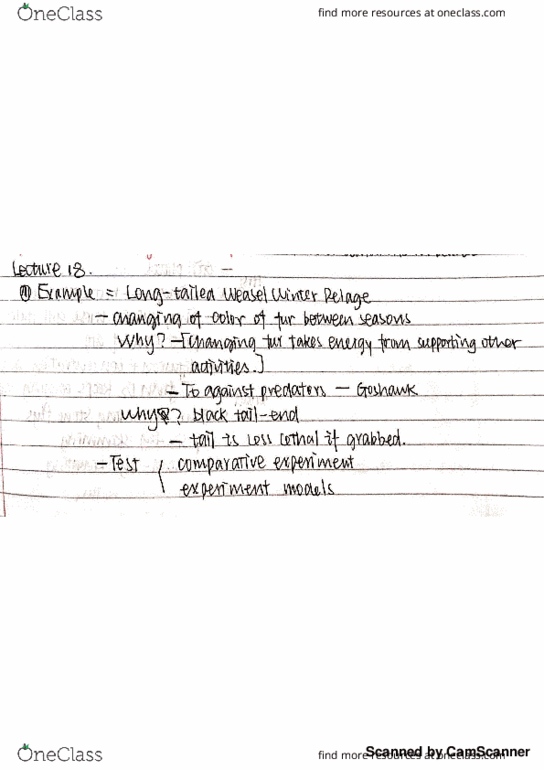 OneClass
find more resources at oneclass.com
Lecture 18.
① Example = Long-tailed Weasel Winter Pelage
- changing of color of fur between seasons
Why? - [changing fur takes energy from supporting other
activities.]
- To against predators - Goshawk
why? black tail-end
- tail is less lethal if grabbed.
- Test { comparative experiment
experiment models
OneClass
find more resources at oneclass.com
Scanned by CamScanner